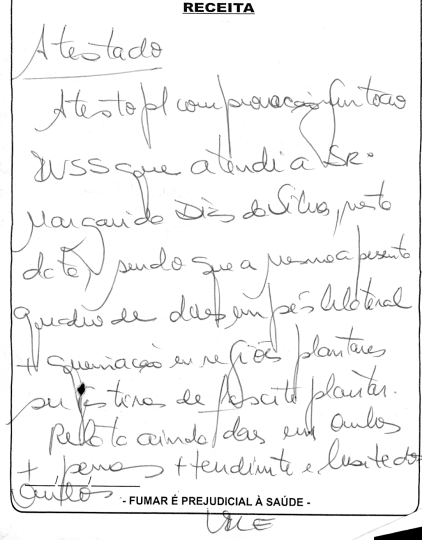 RECEITA
Atestado
Atesto p/ comprovação junto ao
INSS que atendi a SRª
Margarida Dias da Silva, nesta
data, sendo que a mesma apresenta
quadro de dor em pés bilateral
+ queimação em regiões plantares
sugestivas de fascite plantar.
Relata ainda dor em ambos
+ pernas + tendinite e bursite do
- FUMAR É PREJUDICIAL À SAÚDE -
VALE